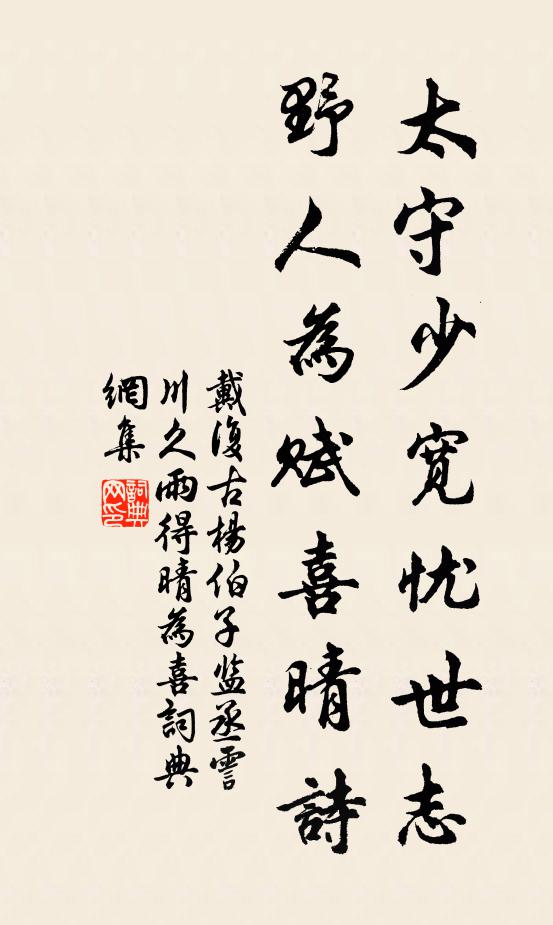 太守少寛忧世志
野人為赋喜晴詩
戴復古楊伯子监丞霅
川久雨得晴為喜詞典
網集
詞典
网印